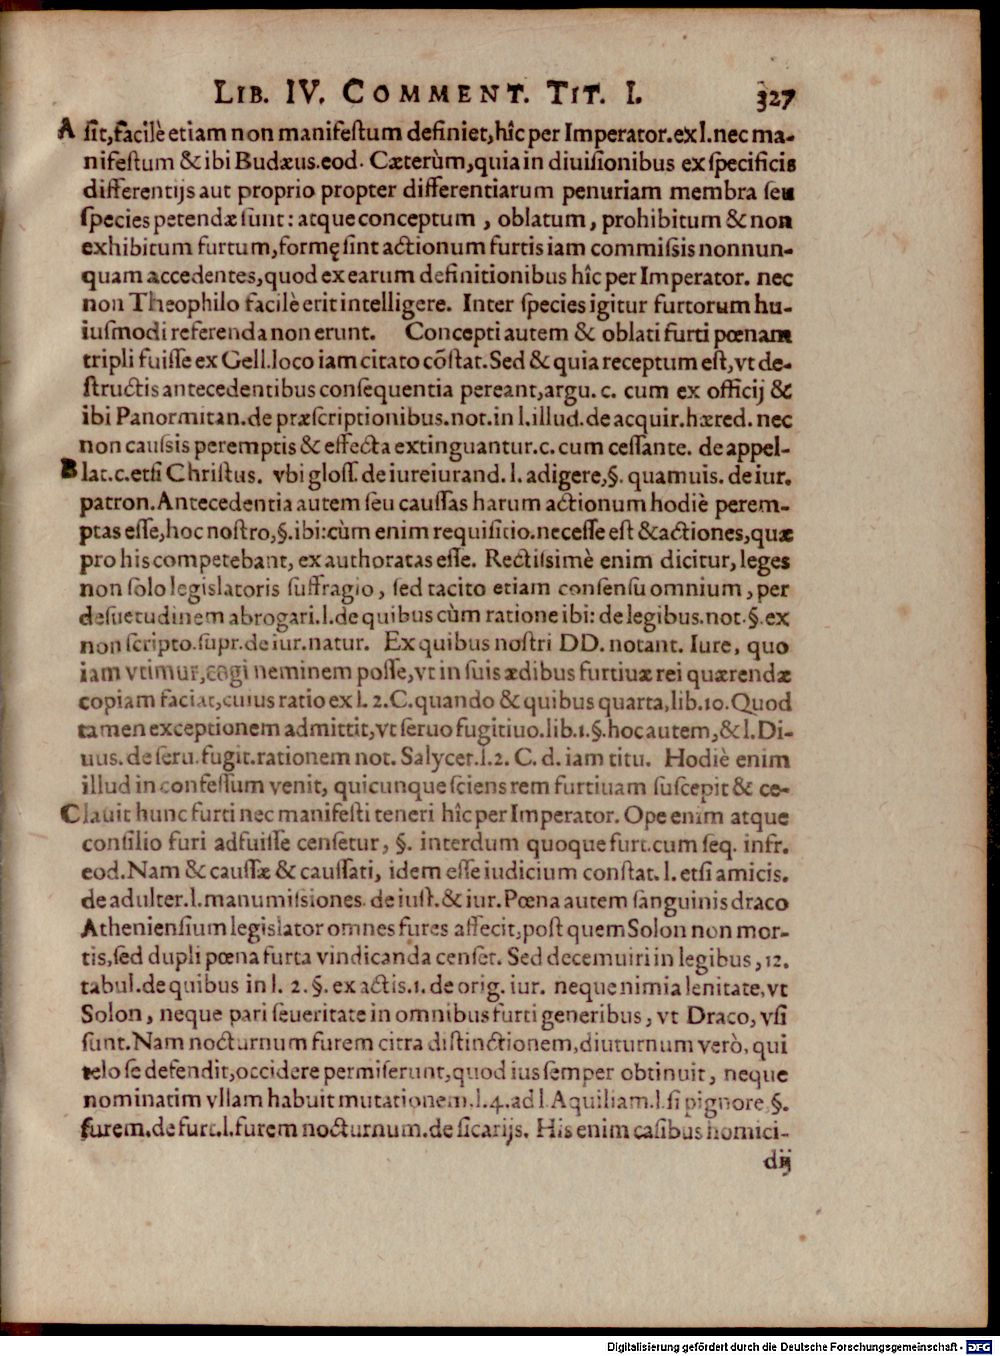 LIB. IV. COMMENT. TIT. I. 327
A sit,facilè etiam non manifestum definiet,hîc per Imperator.ex l.nec ma-
nifestum & ibi Budæus.eod. Cæterùm,quia in diuisionibus ex specificis
differentijs aut proprio propter differentiarum penuriam membra seu
species petendæ sunt: atque conceptum, oblatum, prohibitum & non
exhibitum furtum,formę sint actionum furtis iam commissis nonnun-
quam accedentes,quod ex earum definitionibus hîc per Imperator. nec
non Theophilo facilè erit intelligere. Inter species igitur furtorum hu-
iusmodi referenda non erunt. Concepti autem & oblati furti pœnam
tripli fuisse ex Gell.loco iam citato cõstat.Sed & quia receptum est,vt de-
structis antecedentibus consequentia pereant,argu. c. cum ex officij &
ibi Panormitan.de præscriptionibus.not.in l.illud.de acquir.hæred. nec
non caussis peremptis & effecta extinguantur.c.cum cessante. de appel-
B lat.c.etsi Christus. vbi gloss.de iureiurand.l.adigere,§. quamuis. de iur.
patron.Antecedentia autem seu caussas harum actionum hodiè perem-
ptas esse,hoc nostro,§.ibi:cùm enim requisitio.necesse est & actiones,quæ
pro his competebant, exauthoratas esse. Rectissimè enim dicitur, leges
non solo legislatoris suffragio, sed tacito etiam consensu omnium, per
desuetudinem abrogari.l.de quibus cùm ratione ibi: de legibus.not.§.ex
non scripto.supr.de iur.natur. Ex quibus nostri DD. notant. Iure, quo
iam vtimur,cogi neminem posse,vt in suis ædibus furtiuæ rei quærendæ
copiam faciat,cuius ratio ex l. 2.C.quando & quibus quarta,lib.10.Quod
tamen exceptionem admittit,vt seruo fugitiuo.lib.1.§.hoc autem,& l.Di-
uus. de seru.fugit.rationem not. Salycet.l.2. C. d. iam titu. Hodiè enim
illud in confessum venit, quicunque sciens rem furtiuam suscepit & ce-
C lauit hunc furti nec manifesti teneri hîc per Imperator. Ope enim atque
consilio furi adfuisse censetur, §. interdum quoque furt.cum seq. infr.
eod.Nam & caussæ & caussati, idem esse iudicium constat. l. etsi amicis.
de adulter.l.manumissiones. de iust.& iur. Pœna autem sanguinis draco
Atheniensium legislator omnes fures affecit,post quem Solon non mor-
tis,sed dupli pœna furta vindicanda censet. Sed decemuiri in legibus, 12.
tabul.de quibus in l. 2. §. exactis.1. de orig. iur. neque nimia lenitate,vt
Solon, neque pari seueritate in omnibus furti generibus, vt Draco, vsi
sunt.Nam nocturnum furem citra distinctionem,diuturnum verò, qui
telo se defendit,occidere permiserunt,quod ius semper obtinuit, neque
nominatim vllam habuit mutationem.l.4.ad l Aquiliam.l.si pignore §.
furem.de furt.l.furem nocturnum.de sicarijs. His enim casibus homici-
dij
Digitalisierung gefördert durch die Deutsche Forschungsgemeinschaft - DFG